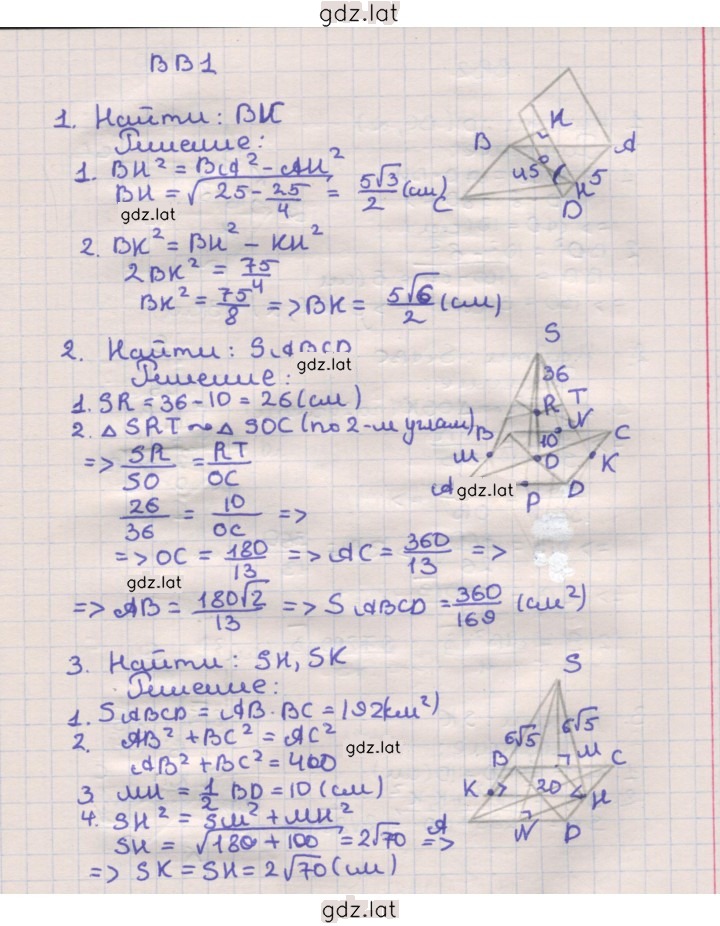 gdz.lat
ВВ1
1. Найти: BK
Решение:
1. BH² = BA² - AH²
BH = √(25 - 25/4) = 5√3/2 (см)
gdz.lat
2. BK² = BH² - KH²
2BK² = 75/4
BK² = 75/8 => BK = 5√6/2 (см)
B K A
45° H 5
C D
2. Найти: SABCD
gdz.lat
Решение:
1. SR = 36 - 10 = 26 (см)
2. △SRT ~ △SOC (по 2-м углам)
=> SR/SO = RT/OC
26/36 = 10/OC =>
=> OC = 180/13 => AC = 360/13 =>
gdz.lat
=> AB = 180√2/13 => SABCD = 360/169 (см²)
S
36
R T
B 10 N C
M O K
A gdz.lat D
P
3. Найти: SH, SK
Решение:
1. SABCD = AB · BC = 192 (см²)
2. AB² + BC² = AC²
gdz.lat
AB² + BC² = 400
3. MH = 1/2 BD = 10 (см)
4. SH² = SM² + MH²
SH = √(180 + 100) = 2√70 =>
=> SK = SH = 2√70 (см)
S
6√5 6√5
B M C
K 20 H
A N D
gdz.lat